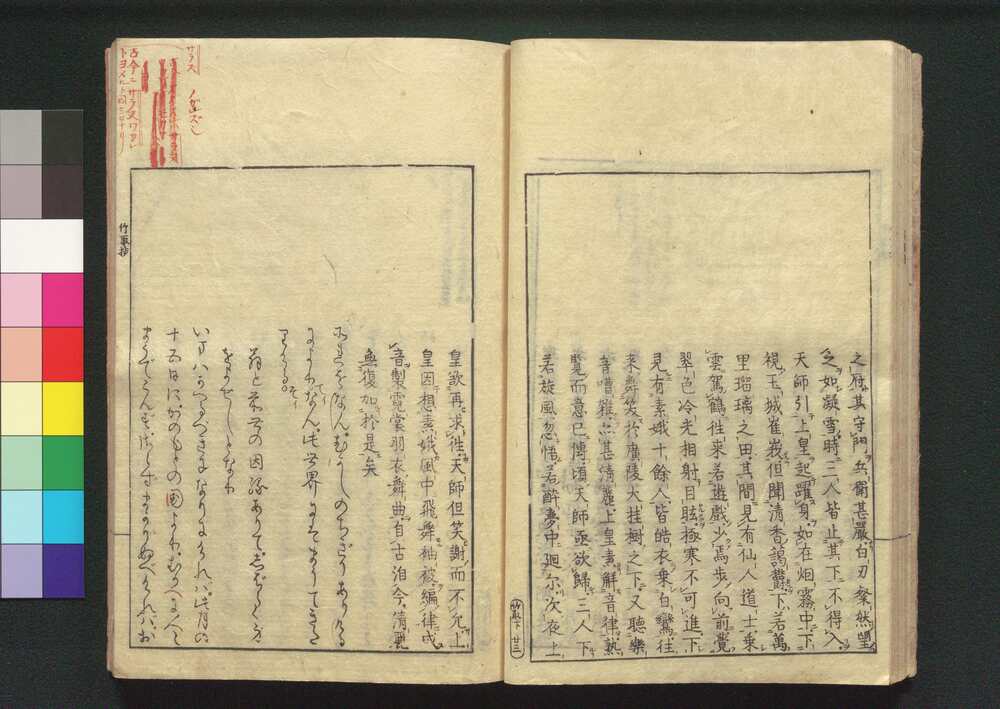 之府其守門兵衞甚嚴白刃粲然望
之如凝雪時三人皆止其下不得入
天師引上皇起躍身如在烟霧中下
視玉城崔莪但聞清香靄欝下若萬
里瑠璃之田其間見有仙人道士乗
雲駕鶴徃来若遊戯少焉歩向前覺
翠色冷光相射目眩極寒不可進下
見有素娥十餘人皆皓衣乗白鸞徃
来舞笑於廣陵大桂樹之下又聴樂
音嘈雜亦甚清麗上皇素解音律熟
覽而意已傳頃天師亟欲歸三人下
若旋風忽悟若醉夢中廻尓次夜上
竹取下 廿三
皇欲再求徃天師但笑謝而不允上
皇因想素娥風中飛舞袖被編律成
音製霓裳羽衣舞曲自古洎今清麗
無復加於是矣
それをなんむかしのちぎりありける
によりなん此世界にはまうできた
りける
翁と前世の因縁ありてしばしが
せしとなり
いまはかへるべきになりにければ此月の
十五日にかのもとの国よりむかへに人〻
まうでこんずさらずまかりぬべければお
竹取抄
サラス
古今ニサラヌワカレ
トヨメル